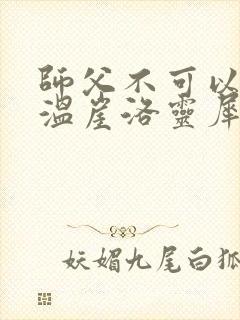 師父不可以
溫崖洛靈犀
妖媚九尾白狐